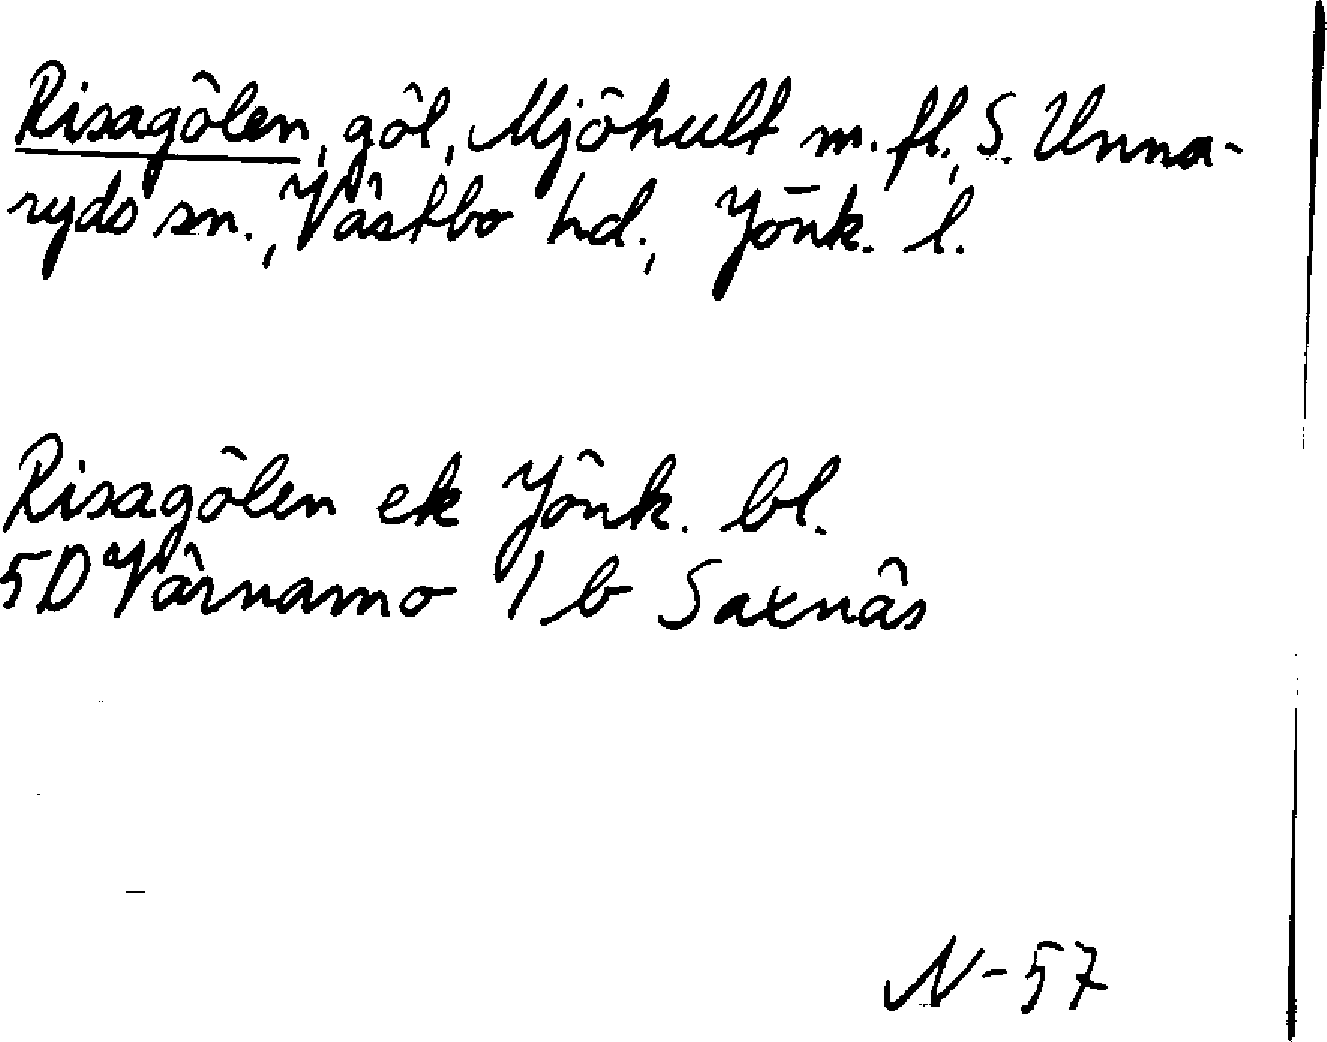 Risagölen, göl, Mjöhult m.fl., S. Unna-
ryds sn., Västbo hd., Jönk. l.
Risagölen ek Jönk. bl.
5D Värnamo 1 b Saxnäs
N-57